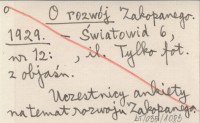 O rozwój Zakopanego.
1929. – Światowid 6,
nr 12: , il. Tylko fot.
z objaśn.
Uczestnicy ankiety
na temat rozwoju Zakopanego.